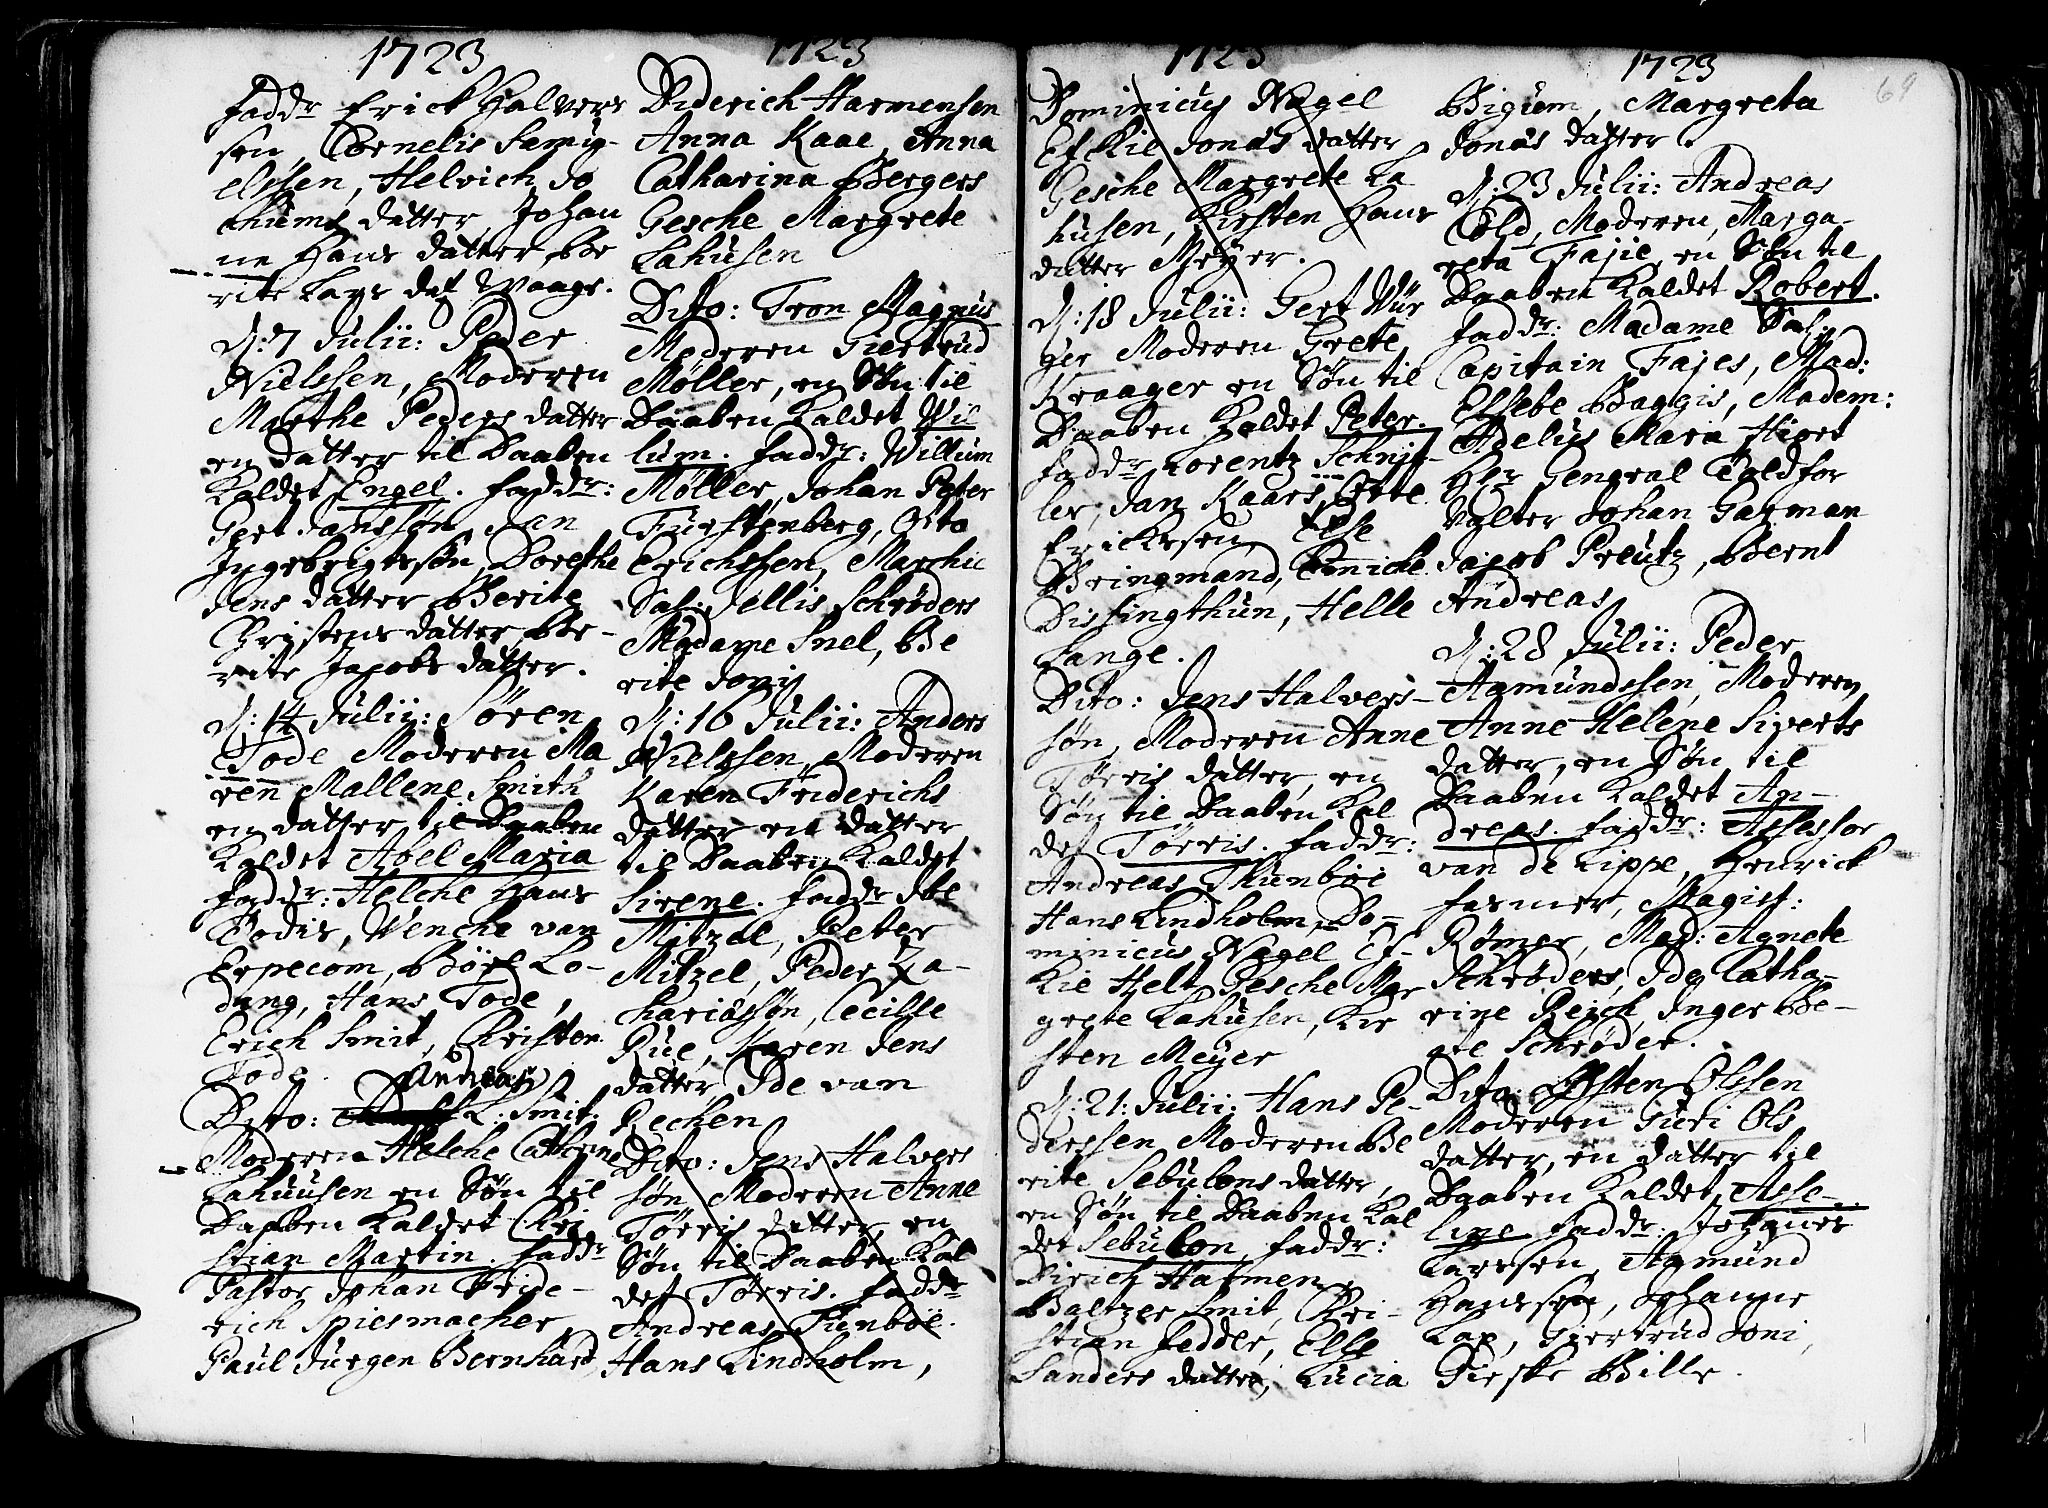 1723
Faddr Erick Halvers
sen, Cornelis Samu-
elssen, Helvich Jo
chums datter, Johan
ne Hans datter, Be
rite Lars dat Waage.
d: 7 Julii: Peder
Nielssen, Moderen
Marthe Peders datter
en datter til Daaben
Kaldet Engel. Faddr:
Gert Janssøn, Jan
Ingebrigtssøn, Dorethe
Jens datter, Berite
Christens datter, Be-
rite Jacobs datter.
d: 14 Julii: Søren
Tode Moderen Ma
ren Mallene Smith
en datter til Daaben
Kaldet Abel Maria
Faddr: Helche Hans
Bodis, Wencke van
Erpecom, Børe Lo-
dung, Hans Tode,
Erich Smit, Kristen
Tode.
Andreas
Dito: L: Smit:
Moderen Helche Cathrine
Lahuusen en Søn til
Daaben Kaldet Chri
stian Martin. Faddr
Pastor Johan Fride-
rich Spiesmacher
Paul Jürgen Bernhard,
1723
Diderich Harmensen
Anna Kaae, Anna
Catharina Bergers
Gesche Margrete
Lahusen
Dito: Tron Magnus
Moderen Giertrud
Møller, en Søn til
Daaben Kaldet Wil
lum. Faddr: Willum
Møller, Johan Peter
Fürstenberg, Otto
Erichssen, Marchie
Sal: Jellis Schrøders
Madame Snel, Be
rite Jonis
d: 16 Julii: Anders
Nielssen, Moderen
Karen Friderichs
datter en datter
til Daaben Kaldet
Sirene. Faddr Ibe
Mitzel, Peter
Mitzel, Peder Za-
chariassøn, Cecille
Rue, Karen Jens
datter, Ide van
Rechen
Dito: Jens Halvers
søn, Moderen Anne
Tørris datter, en
Søn til Daaben Kal
det Tørris. Faddr
Andreas Tünbøe.
Hans Lindholm,
1723
Dominicus Nagel
Efkie Jonas datter,
Gesche Margrete La
husen, Kirsten Hans
datter Meyer.
d: 18 Julii: Gert Wür
ger Moderen Grete
Kraager en Søn til
Daaben Kaldet Peter.
Faddr Lorentz Schnit-
ler, Jan Kaars, Otte
Ericksen, Else
Bringmand,
Dissingthun, Helle
Lange.
Dito: Jens Halvers-
søn, Moderen Anne
Tørris datter, en
Søn til Daaben Kal
det Tørris. Faddr:
Andreas Thunbøe
Hans Lindholm, Do-
minicus Nagel Ef-
kie Helt, Gesche Mar
grete Lahusen, Kir
sten Meyer
d: 21: Julii: Hans Pe-
derssen, Moderen Be
rite Sebulons datter,
en Søn til Daaben Kal
det Sebulon, Faddr:
Dirich Harmen,
Baltzer Smit, Chri-
stian Fedder, Else
Sanders datter, Lucia
1723
69
Bigum, Margreta
Jonas datter.
d: 23 Julii: Andreas
Cold, Moderen, Marga-
reta Fajie, en Søn til
Daaben Kaldet Robert.
Faddr: Madame Sal:
Capitain Fajes, Mad:
Elsebe Baggis, Madem:
Adelus Maria Hiort
Hr General Toldfor
valter Johan Garman
Jacob Preutz, Bernt
Andreas
d: 28 Julii: Peder
Aamundssen, Moderen
Anne Helene Siverts
datter, en Søn til
Daaben Kaldet An-
dreas. Faddr: Assessor
van de Lippe, Henrick
Farmer, Magist:
Rømer, Mad: Agnete
Schrøders, Ide Catha-
rine Reich, Inger Be-
ate Schrøder.
Dito: Østen Olssen
Moderen Guri Ols
datter, en datter til
Daaben Kaldet Asse-
line Faddr: Johannes
Larssen, Aamund
Hanssen, Johanne
Lap, Giertrud Joni,
Birske Bille.